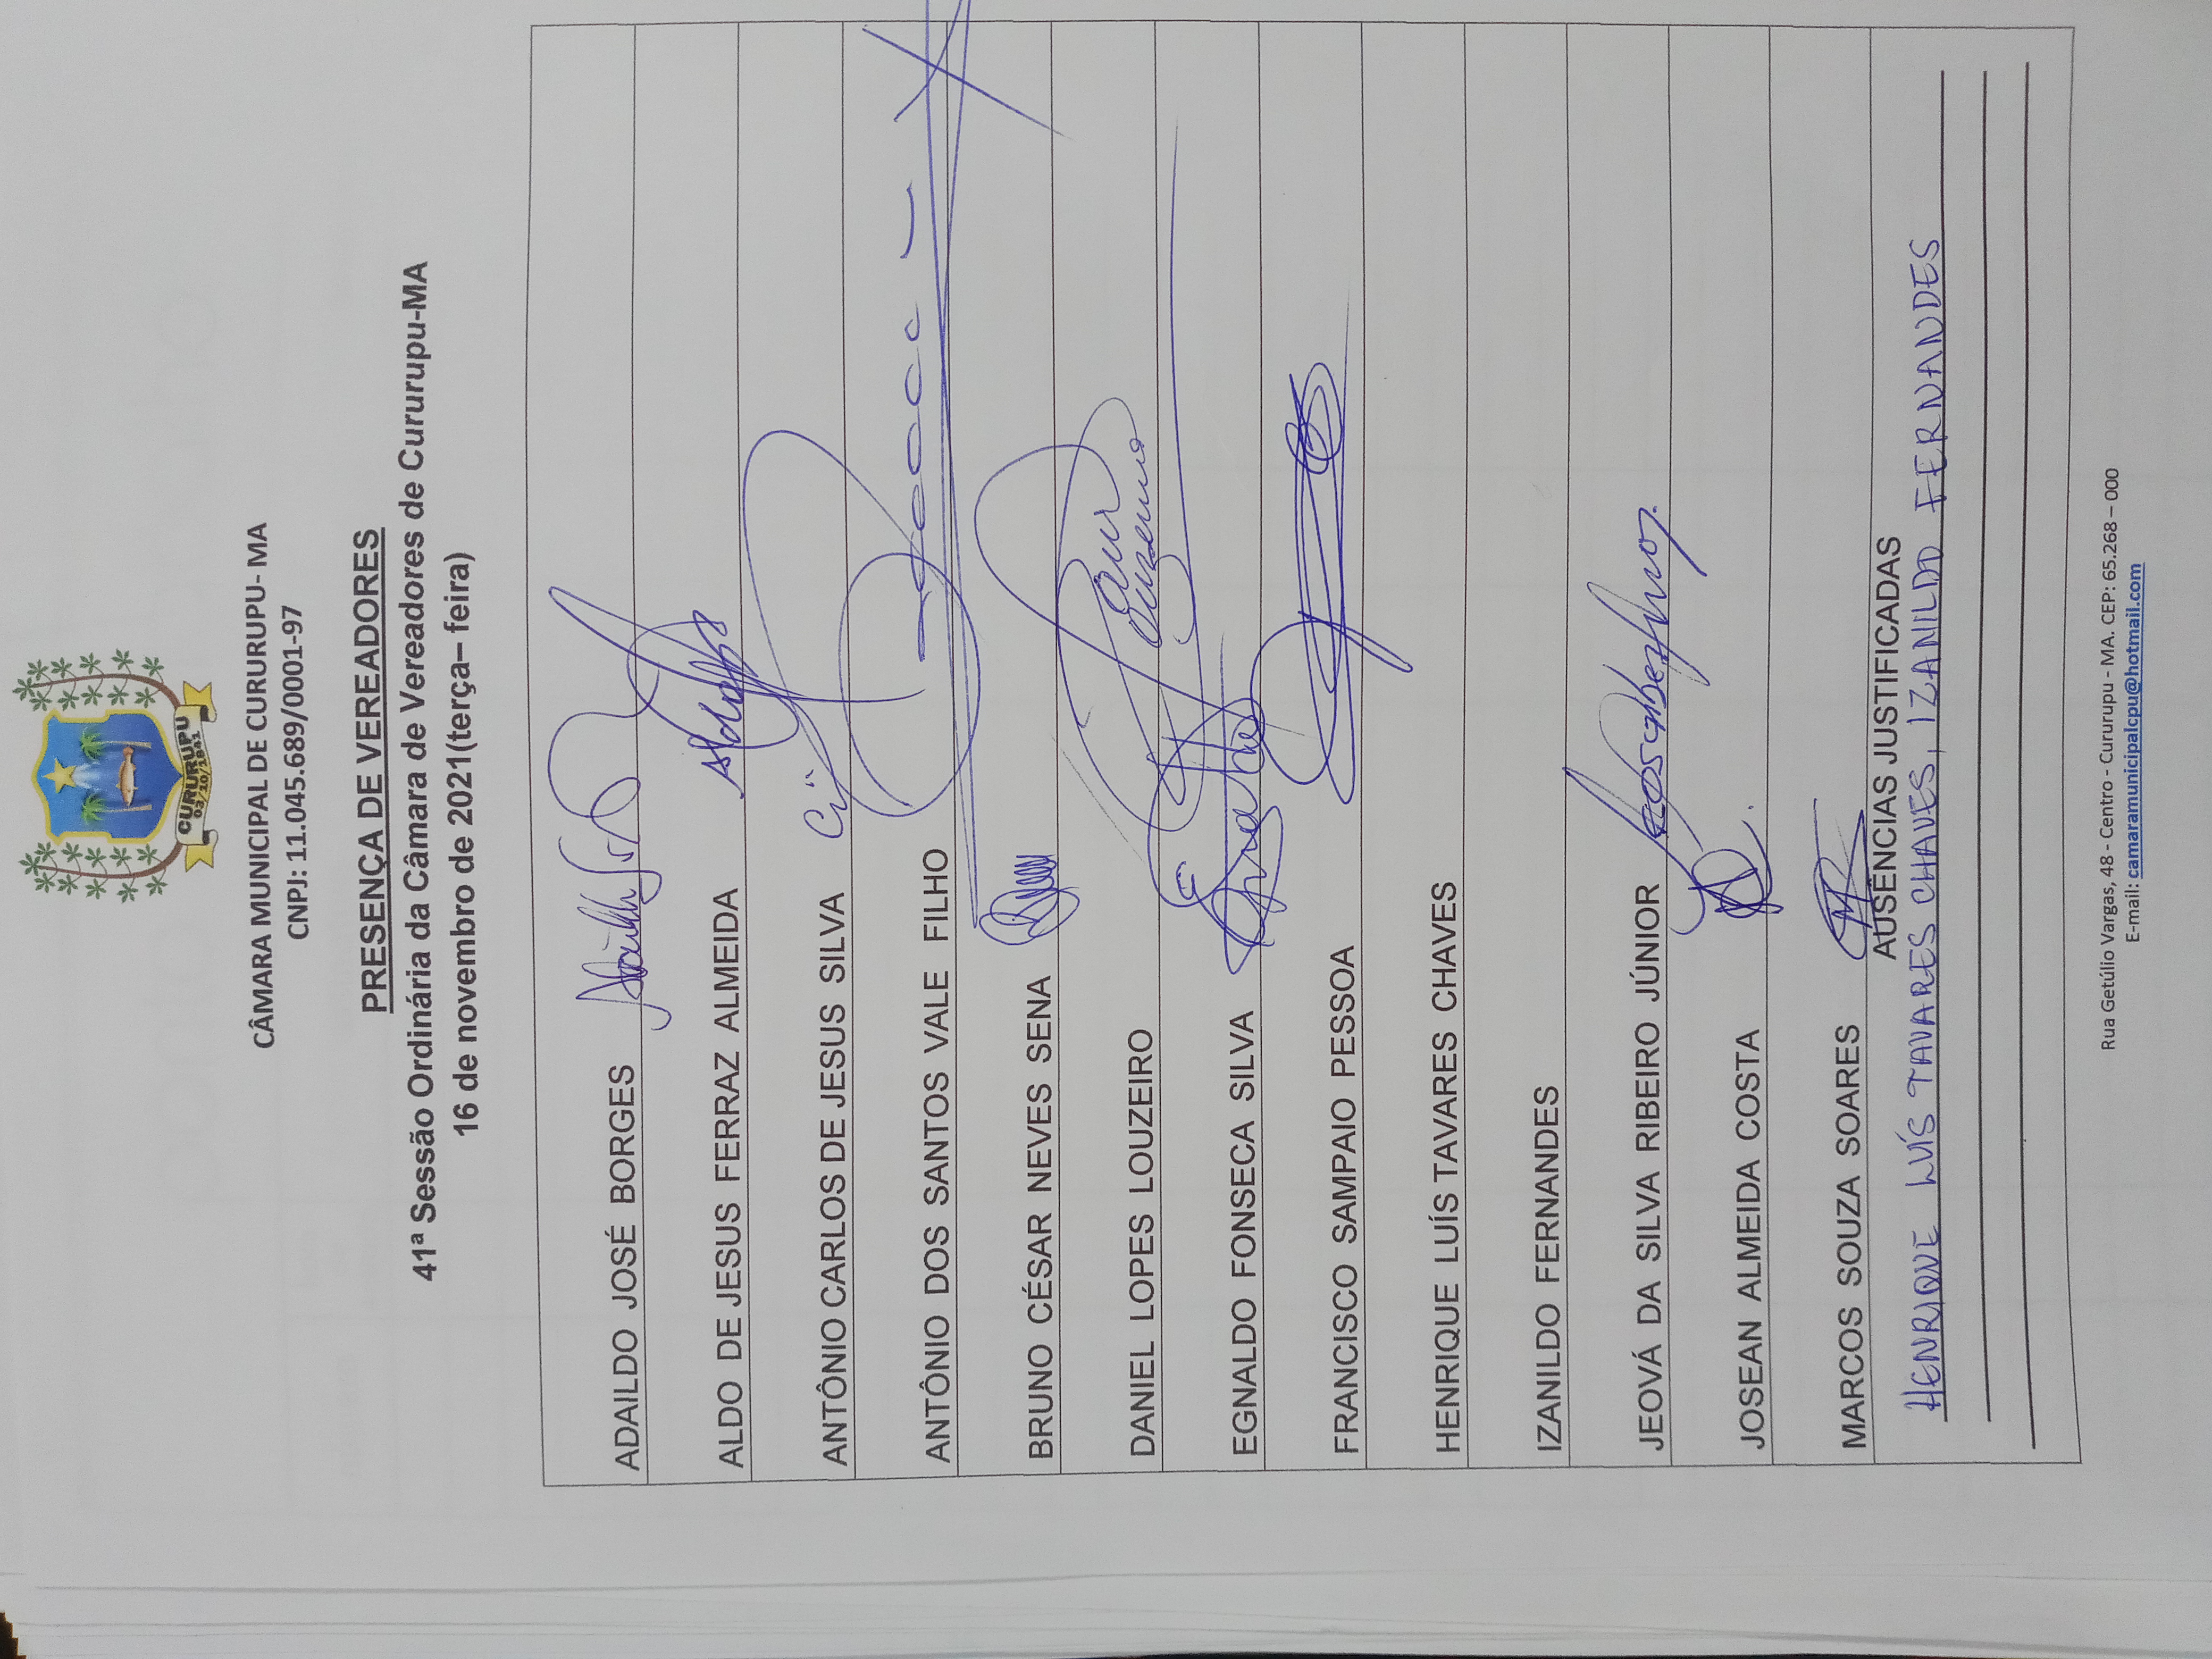 CURURUPU
03/10/1841
CÂMARA MUNICIPAL DE CURURUPU- MA
CNPJ: 11.045.689/0001-97
PRESENÇA DE VEREADORES
41ª Sessão Ordinária da Câmara de Vereadores de Cururupu-MA
16 de novembro de 2021(terça– feira)
ADAILDO JOSÉ BORGES
ALDO DE JESUS FERRAZ ALMEIDA
ANTÔNIO CARLOS DE JESUS SILVA
ANTÔNIO DOS SANTOS VALE FILHO
BRUNO CÉSAR NEVES SENA
DANIEL LOPES LOUZEIRO
EGNALDO FONSECA SILVA
FRANCISCO SAMPAIO PESSOA
HENRIQUE LUÍS TAVARES CHAVES
IZANILDO FERNANDES
JEOVÁ DA SILVA RIBEIRO JÚNIOR
JOSEAN ALMEIDA COSTA
MARCOS SOUZA SOARES
AUSÊNCIAS JUSTIFICADAS
HENRIQUE LUÍS TAVARES CHAVES, IZANILDO FERNANDES
Rua Getúlio Vargas, 48 - Centro - Cururupu - MA. CEP: 65.268 – 000
E-mail: camaramunicipalcpu@hotmail.com